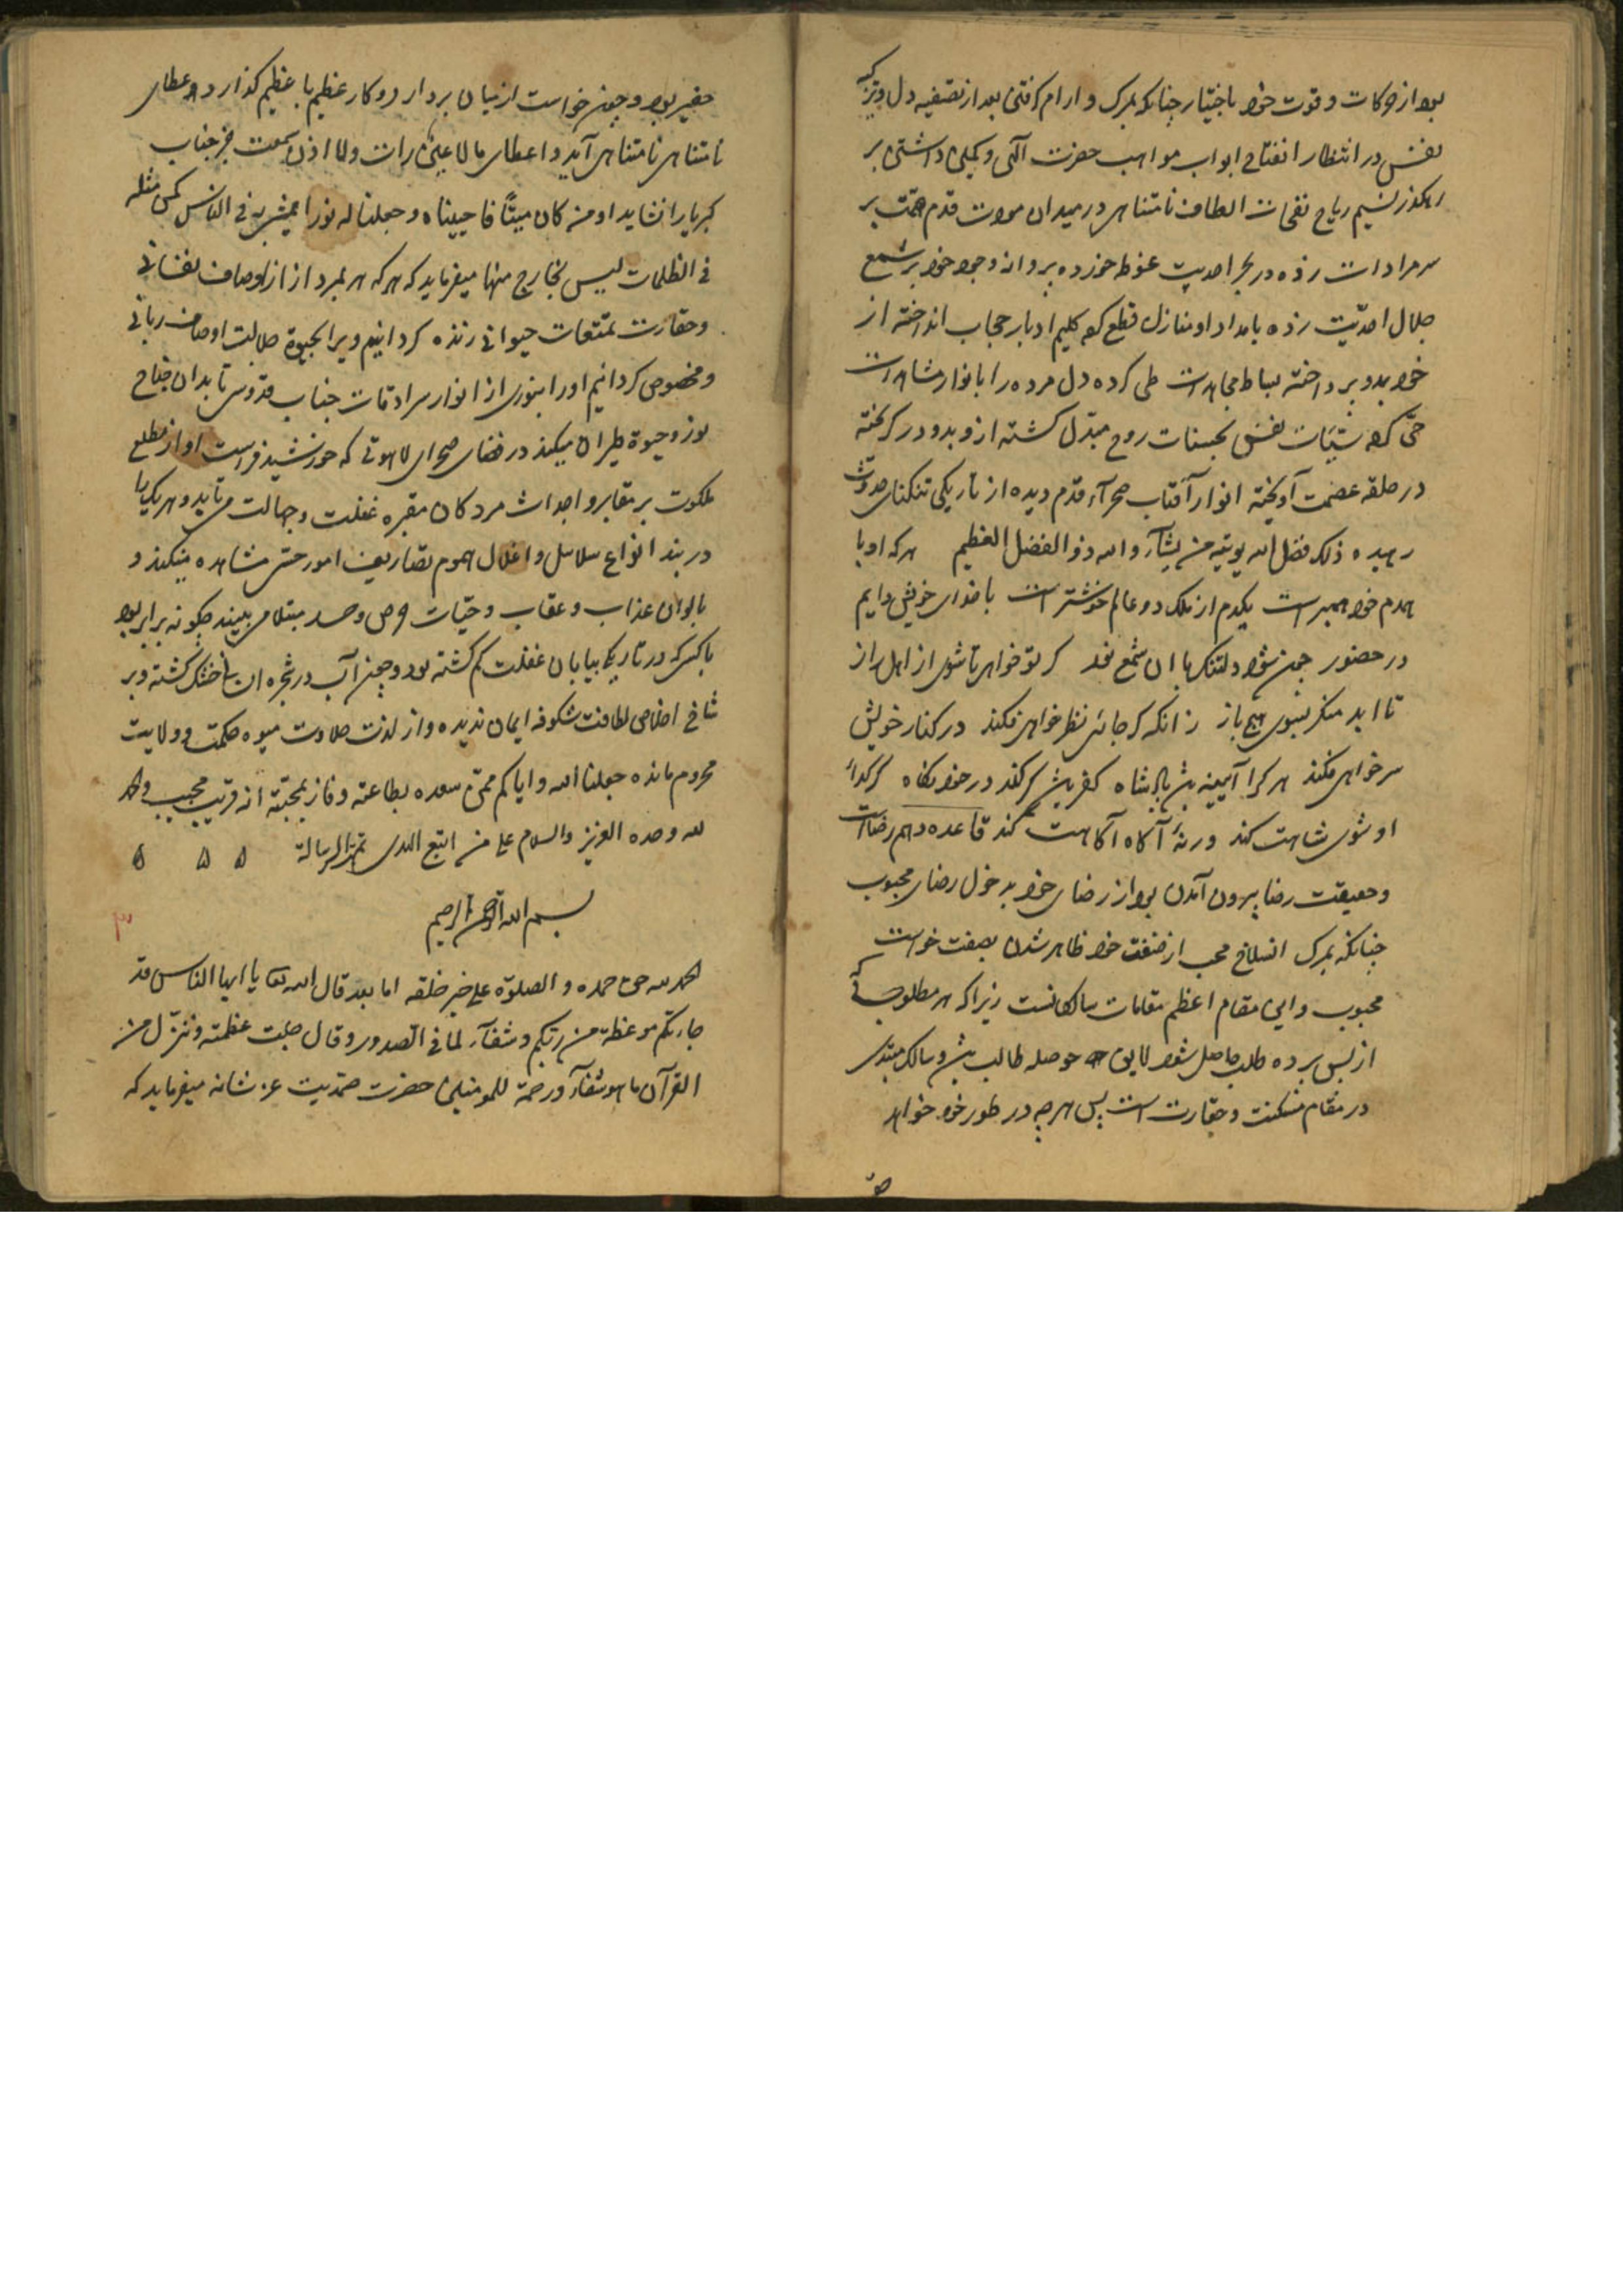 بود از حرکات و قوت خود باختیار چنانکه بمرک و ارام کرفتن بعد از تصفیه دل و تزکیه
نفس در انتظار انفتاح ابواب مواهب حضرت الهی و کمین داشتن بر
رهکذر نسیم ریاح نفحات الطاف نامتناهی در میدان مودت قدم همت بر
سر مرادات زده در بحر احدیت غوطه خورده پروانه وجود خود بر شمع
جلال احدّیت زده بامداد او منازل قطع کرده کلیم ادبار حجاب انداخته از
خود بدو پرداخته بساط مجاهدات طی کرده دل مرده را بانوار مشاهدات
حی کرده سیّئات نفس بحسنات روح مبدّل کشته ازو بدو در کریخته
در حلقه عصمت آویخته انوار آفتاب صحرآء قدم دیده از تاریکی تنکنای حدوث
رهیده ذلک فضل الله یوتیه من یشآء والله ذو الفضل العظیم هر که او با
همدم خود همبر است یکدم از ملک دو عالم خوشتر است با خدای خویش دایم
در حضور چون شود دلتنک با ان شمع نور کر تو خواهی تا شوی از اهل راز
تا ابد منکر بسوی هیچ باز زانکه کر جائی نظر خواهی فکند در کنار خویش
سر خواهی فکند هر کرا آیینه پیش پادشاه کفر پیش کر کند در خود نکاه کر کدائ
او شوی شاهت کند ورنهٔ آکاه آکاهت کند قاعده دهم رضاست
و حقیقت رضا بیرون آمدن بود از رضای خود بدخول رضای محبوب
چنانکه بمرک انسلاخ محب از صفت خود ظاهر شدن بصفت خواست
محبوب و این مقام اعظم مقامات سالکانست زیرا که هر مطلوب که
از پس پرده طلب حاصل شود لایق حوصله طالب بیش و سالک مبتدی
در مقام مسکنت و حقارت است پس هرچه در طور خود خواهد
حقیر بود و چون خواست از میان بردارد و کار عظیم با عظیم کذارد و عطای
نامتناهی نامتناهی آید و اعطای ما لا عین رات ولا اذن سمعت جز جناب
کبریا را نشاید اومن کان میتًا فاحییناه وجعلنا له نورا یمشی به فی الناس کمن مثله
فی الظلمات لیس بخارج منها میفرماید که هر که بمیرد از اوصاف نفسانی
و حقارت تمتعات حیوانی زنده کردانیم ویرا بحیوة جلالت اوصاف ربانی
و مخصوص کردانیم اورا بنوری از انوار سرادقات جناب قدوس تا بدان جناح
نور و حیوة طیران میکند در فضای صحرای لاهوتی که خورشید فراست او از مطلع
ملکوت بر مقابر و اجداث مردکان مقبره غفلت و جهالت می‌تابد و هر یک را
در بند انواع سلاسل و اغلال هموم تصاریف امور حسّی مشاهده میکند و
بالوان عذاب و عقاب و حیّات حرص و حسد مبتلا می بیند چکونه برابر بود
با کسی که در تاریک بیابان غفلت کم کشته بود و چون آب در شجره انسانی خشک کشته و بر
شاخ اخلاص لطافت شکوفه ایمان ندیده و از لذت حلاوت میوه حکمت و ولایت
محروم مانده جعلنا الله وایاکم ممن سعد بطاعته وفاز بمحبته انه قریب مجیب والحمد
لله وحده العزیز والسلام علی من اتبع الهدی تمت الرسالة ۵ ۵ ۵
بسم الله الرحمن الرحیم
۳
الحمد لله حق حمده و الصلوة علی خیر خلقه اما بعد قال الله تعا یا ایها الناس قد
جاءتکم موعظة من ربکم وشفآء لما فی الصدور وقال جلت عظمته وننزّل من
القرآن ما هو شفآء ورحمة للمومنین حضرت صمدیت عز شانه میفرماید که